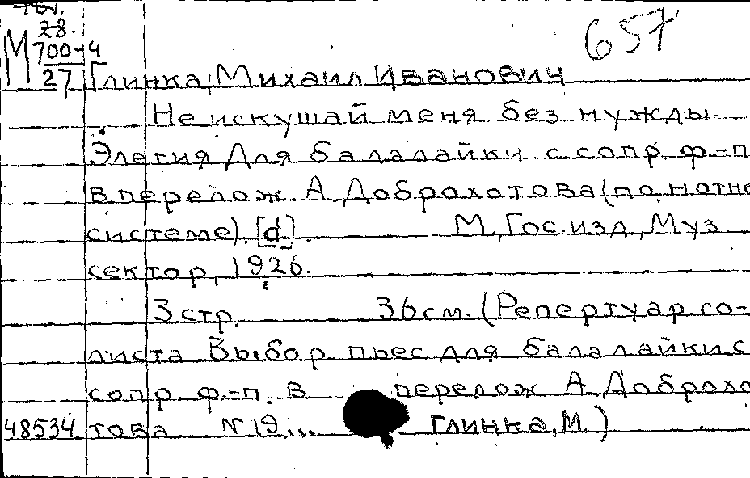 28.
М 700-4
27
657
Глинка, Михаил Иванович
Не искушай меня без нужды
Элегия Для балалайки с сопр. ф.=п
в перелож. А. Доброхотова (по нотно
системе). [d]. М., Гос. изд., Муз
сектор, 1926.
3 стр. 36 см. (Репертуар со-
листа Выбор пьес для балалайки с
сопр. ф.=п. в перелож А. Доброхо
48534 това №19... Глинка, М.)